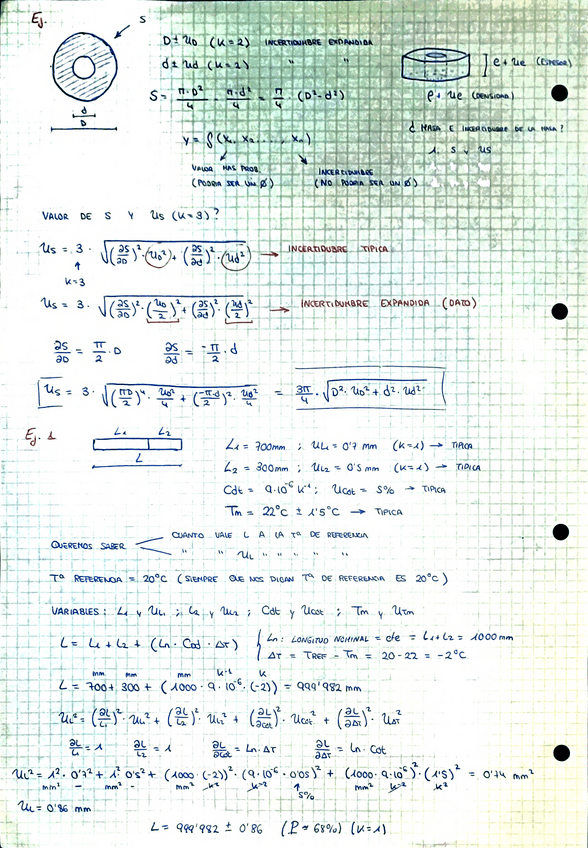 Ej.
S
D ± u_D (K=2) INCERTIDUMBRE EXPANDIDA
d ± u_d (K=2) " "
S = π·D²/4 - π·d²/4 = π/4 (D²-d²)
d
D
e + ue (ESPESOR)
ρ + ue (DENSIDAD)
y = f(x₁, x₂, ..., xₙ)
¿ MASA E INCERTIDUMBRE DE LA MASA?
VALOR MAS PROB.
(PODRIA SER UN Ø)
INCERTIDUMBRE
(NO PODRIA SER UN Ø)
1. S y US
VALOR DE S Y Us (K=3)?
Us = 3 · √((∂S/∂D)²·(u_D²) + (∂S/∂d)²·(u_d²)) → INCERTIDUBRE TIPICA
K=3
Us = 3 · √((∂S/∂D)²·(u_D/2)² + (∂S/∂d)²·(u_d/2)²) → INCERTIDUMBRE EXPANDIDA (DATO)
∂S/∂D = π/2 · D ∂S/∂d = -π/2 · d
Us = 3 · √((πD/2)⁴ · u_D²/4 + (-πd/2)² · u_d²/4) = 3π/4 · √(D²·u_D² + d²·u_d²)
Ej. 1
L₁ L₂
L
L₁ = 700mm ; UL₁ = 0'7 mm (K=1) → TIPICA
L₂ = 300mm ; UL₂ = 0'5 mm (K=1) → TIPICA
Cdt = 9·10⁻⁶ K⁻¹ ; Ucdt = 5% → TIPICA
Tm = 22°C ± 1'5°C → TIPICA
QUEREMOS SABER
CUANTO VALE L A LA Tª DE REFERENCIA
" " UL " " " "
Tª REFERENCIA = 20°C (SIEMPRE QUE NOS DIGAN Tª DE REFERENCIA ES 20°C)
VARIABLES: L₁ y UL₁ ; L₂ y UL₂ ; Cdt y Ucdt ; Tm y UTm
L = L₁ + L₂ + (Ln · Cod · ΔT)
Ln: LONGITUD NOMINAL = cte = L₁+L₂ = 1000mm
ΔT = TREF - Tm = 20-22 = -2°C
mm mm mm K⁻¹ K
L = 700 + 300 + (1000 · 9·10⁻⁶ · (-2)) = 999'982 mm
UL² = (∂L/L₁)² · UL₁² + (∂L/L₂)² · UL₂² + (∂L/∂cdt)² · Ucdt² + (∂L/∂ΔT)² · UΔT²
∂L/L₁ = 1 ∂L/L₂ = 1 ∂L/∂Cdt = Ln·ΔT ∂L/∂ΔT = Ln · Cdt
UL² = 1² · 0'7² + 1² 0'5² + (1000·(-2))² · (9·10⁻⁶·0'05)² + (1000·9·10⁻⁶)² · (1'5)² = 0'74 mm²
mm² - mm² - mm² K² K⁻² mm² K⁻² K²
5%
UL = 0'86 mm
L = 999'982 ± 0'86 (P ≈ 68%) (K=1)